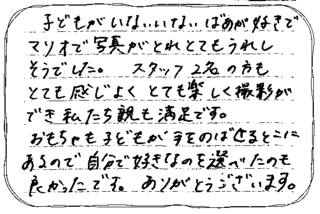 子どもがいないいないばあが好きで
マリオで写真がとれとてもうれし
そうでした。 スタッフ2名の方も
とても感じよく とても楽しく撮影が
でき私たち親も満足です。
おもちゃも子どもが手をのばせるとこに
あるので自分で好きなのを選べたのも
良かったです。 ありがとうございます。